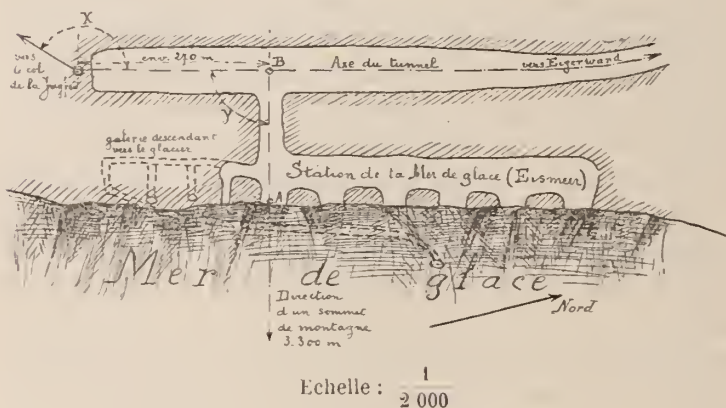 X
vers
le col
de la Jogfrau
env. 270 m
B
Axe du tunnel
vers Eigerwand
y
galerie descendant
vers le glacier
Station de la Mer de glace (Eismeer)
A
Mer de glace
Direction
d un sommet
de montagne
3.300 m
Nord
Echelle : 1
2 000